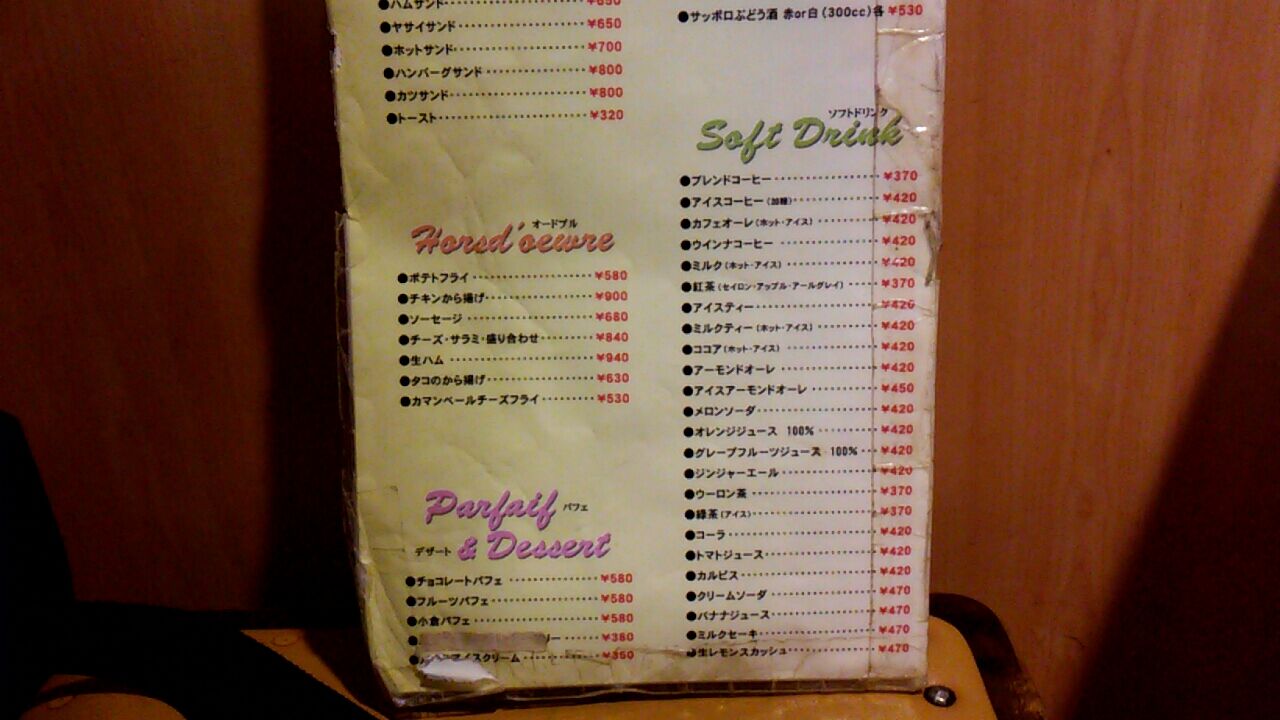 ●ハムサンド ¥650
●ヤサイサンド ¥650
●ホットサンド ¥700
●ハンバーグサンド ¥800
●カツサンド ¥800
●トースト ¥320
オードブル
Horsd'oewre
●ポテトフライ ¥580
●チキンから揚げ ¥900
●ソーセージ ¥680
●チーズ・サラミ・盛り合わせ ¥840
●生ハム ¥940
●タコのから揚げ ¥630
●カマンベールチーズフライ ¥530
Parfaif パフェ
デザート & Dessert
●チョコレートパフェ ¥580
●フルーツパフェ ¥580
●小倉パフェ ¥580
リー ¥380
アイスクリーム ¥350
●サッポロぶどう酒 赤or白(300cc)各 ¥530
ソフトドリンク
Soft Drink
●ブレンドコーヒー ¥370
●アイスコーヒー(加糖) ¥420
●カフェオーレ(ホット・アイス) ¥420
●ウインナコーヒー ¥420
●ミルク(ホット・アイス) ¥420
●紅茶(セイロン・アップル・アールグレイ) ¥370
●アイスティー ¥420
●ミルクティー(ホット・アイス) ¥420
●ココア(ホット・アイス) ¥420
●アーモンドオーレ ¥420
●アイスアーモンドオーレ ¥450
●メロンソーダ ¥420
●オレンジジュース 100% ¥420
●グレープフルーツジュース 100% ¥420
●ジンジャーエール ¥420
●ウーロン茶 ¥370
●緑茶(アイス) ¥370
●コーラ ¥420
●トマトジュース ¥420
●カルピス ¥420
●クリームソーダ ¥470
●バナナジュース ¥470
●ミルクセーキ ¥470
●生レモンスカッシュ ¥470